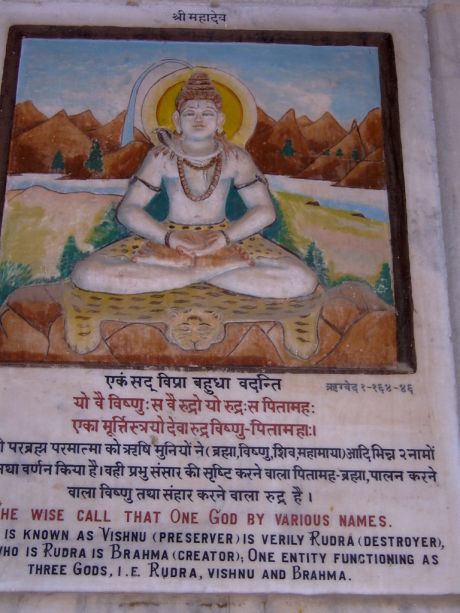 श्री महादेव
एकं सद् विप्रा बहुधा वदन्ति ऋग्वेद १-१६४-४६
यो वै विष्णुः स वै रुद्रो यो रुद्रः स पितामहः
एका मूर्त्तिस्त्रयो देवा रुद्र विष्णु-पितामहाः।
परब्रह्म परमात्मा को ऋषि मुनियों ने (ब्रह्मा,विष्णु,शिव,महामाया) आदि भिन्न २ नामों
वर्णन किया है। वही प्रभु संसार की सृष्टि करने वाला पितामह-ब्रह्मा, पालन करने
वाला विष्णु तथा संहार करने वाला रुद्र है।
THE WISE CALL THAT ONE GOD BY VARIOUS NAMES.
IS KNOWN AS VISHNU (PRESERVER) IS VERILY RUDRA (DESTROYER),
WHO IS RUDRA IS BRAHMA (CREATOR); ONE ENTITY FUNCTIONING AS
THREE GODS, I.E. RUDRA, VISHNU AND BRAHMA.